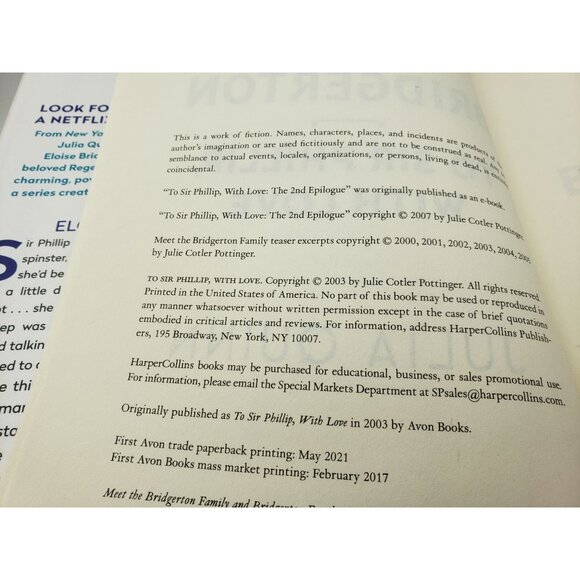 LOOK FO
A NETFLIX
From New Yo
Julia Qu
Eloise Brid
beloved Rege
charming, pow
a series creat
ELO
Sir Phillip
spinster,
she'd be
a little d
ot . . . she
ep was
d talkin
ed to c
e thi
man
sta
RIDGERTON
JULIA QU
This is a work of fiction. Names, characters, places, and incidents are products of the
author's imagination or are used fictitiously and are not to be construed as real. Any re-
semblance to actual events, locales, organizations, or persons, living or dead, is entirely
coincidental.
"To Sir Phillip, With Love: The 2nd Epilogue" was originally published as an e-book.
"To Sir Phillip, With Love: The 2nd Epilogue" copyright © 2007 by Julie Cotler Pottinger.
Meet the Bridgerton Family teaser excerpts copyright © 2000, 2001, 2002, 2003, 2004, 2005
by Julie Cotler Pottinger.
TO SIR PHILLIP, WITH LOVE. Copyright © 2003 by Julie Cotler Pottinger. All rights reserved.
Printed in the United States of America. No part of this book may be used or reproduced in
any manner whatsoever without written permission except in the case of brief quotations
embodied in critical articles and reviews. For information, address HarperCollins Publish-
ers, 195 Broadway, New York, NY 10007.
HarperCollins books may be purchased for educational, business, or sales promotional use.
For information, please email the Special Markets Department at SPsales@harpercollins.com.
Originally published as To Sir Phillip, With Love in 2003 by Avon Books.
First Avon trade paperback printing: May 2021
First Avon Books mass market printing: February 2017
Meet the Bridgerton Family and Bridgerton Family